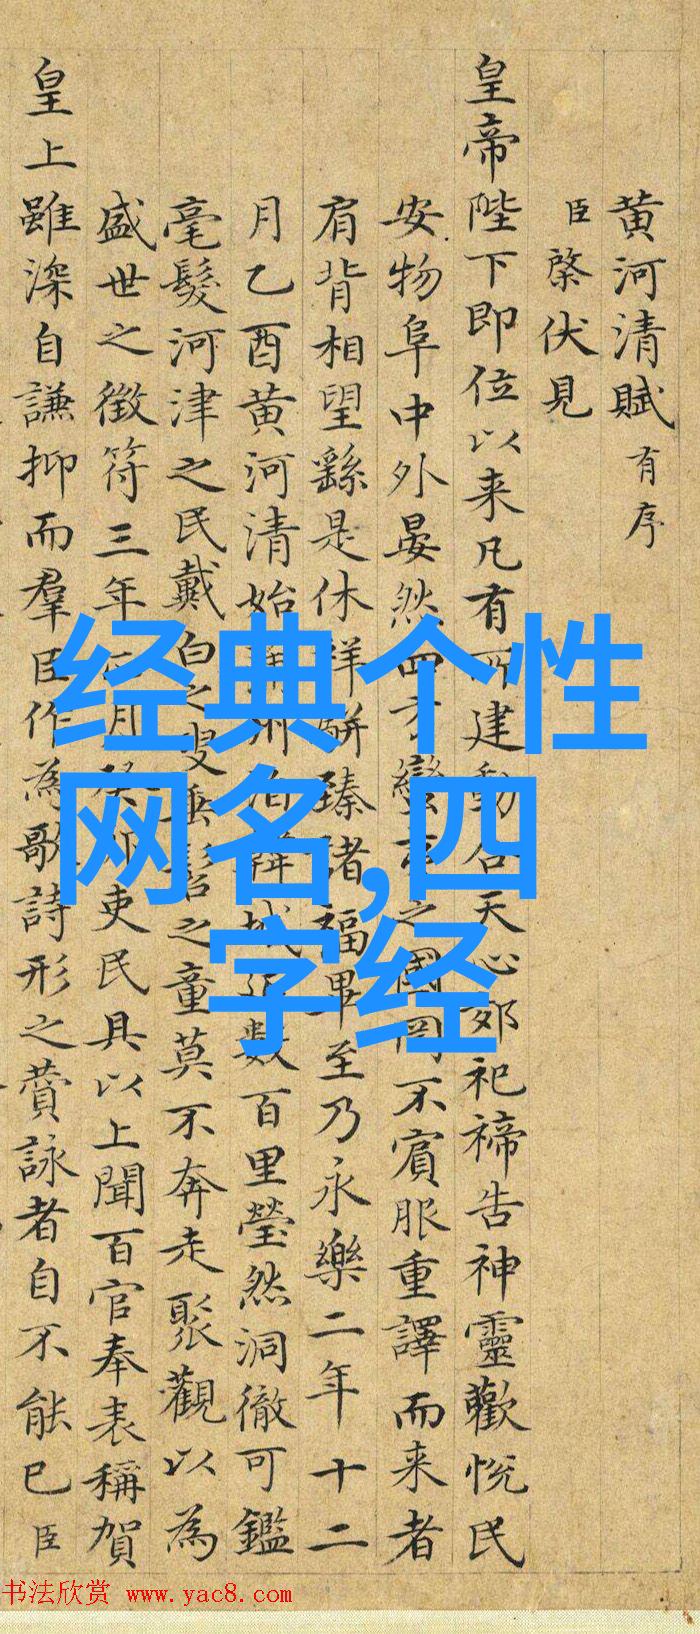 黄河清賦有序
臣棨伏見
皇帝陛下即位以来凡有所建動合天心郊祀禘告神靈歡悅民
安物阜中外晏然四方蠻之國罔不賓服重譯而来者
肩背相望繇是休祥駢臻諸福畢至乃永樂二年十二
月乙酉黄河清始州韓城数百里瑩然洞徹可鑑
毫髮河津之民戴白之叟垂之童莫不奔走聚觀以為
盛世之徵符三年月吏民具以上聞百官奉表稱賀
皇上雖深自謙抑而羣臣作為歌詩形之賛詠者自不能已臣
经典个性
网名,四
字经
书法欣赏 www.yac8.com